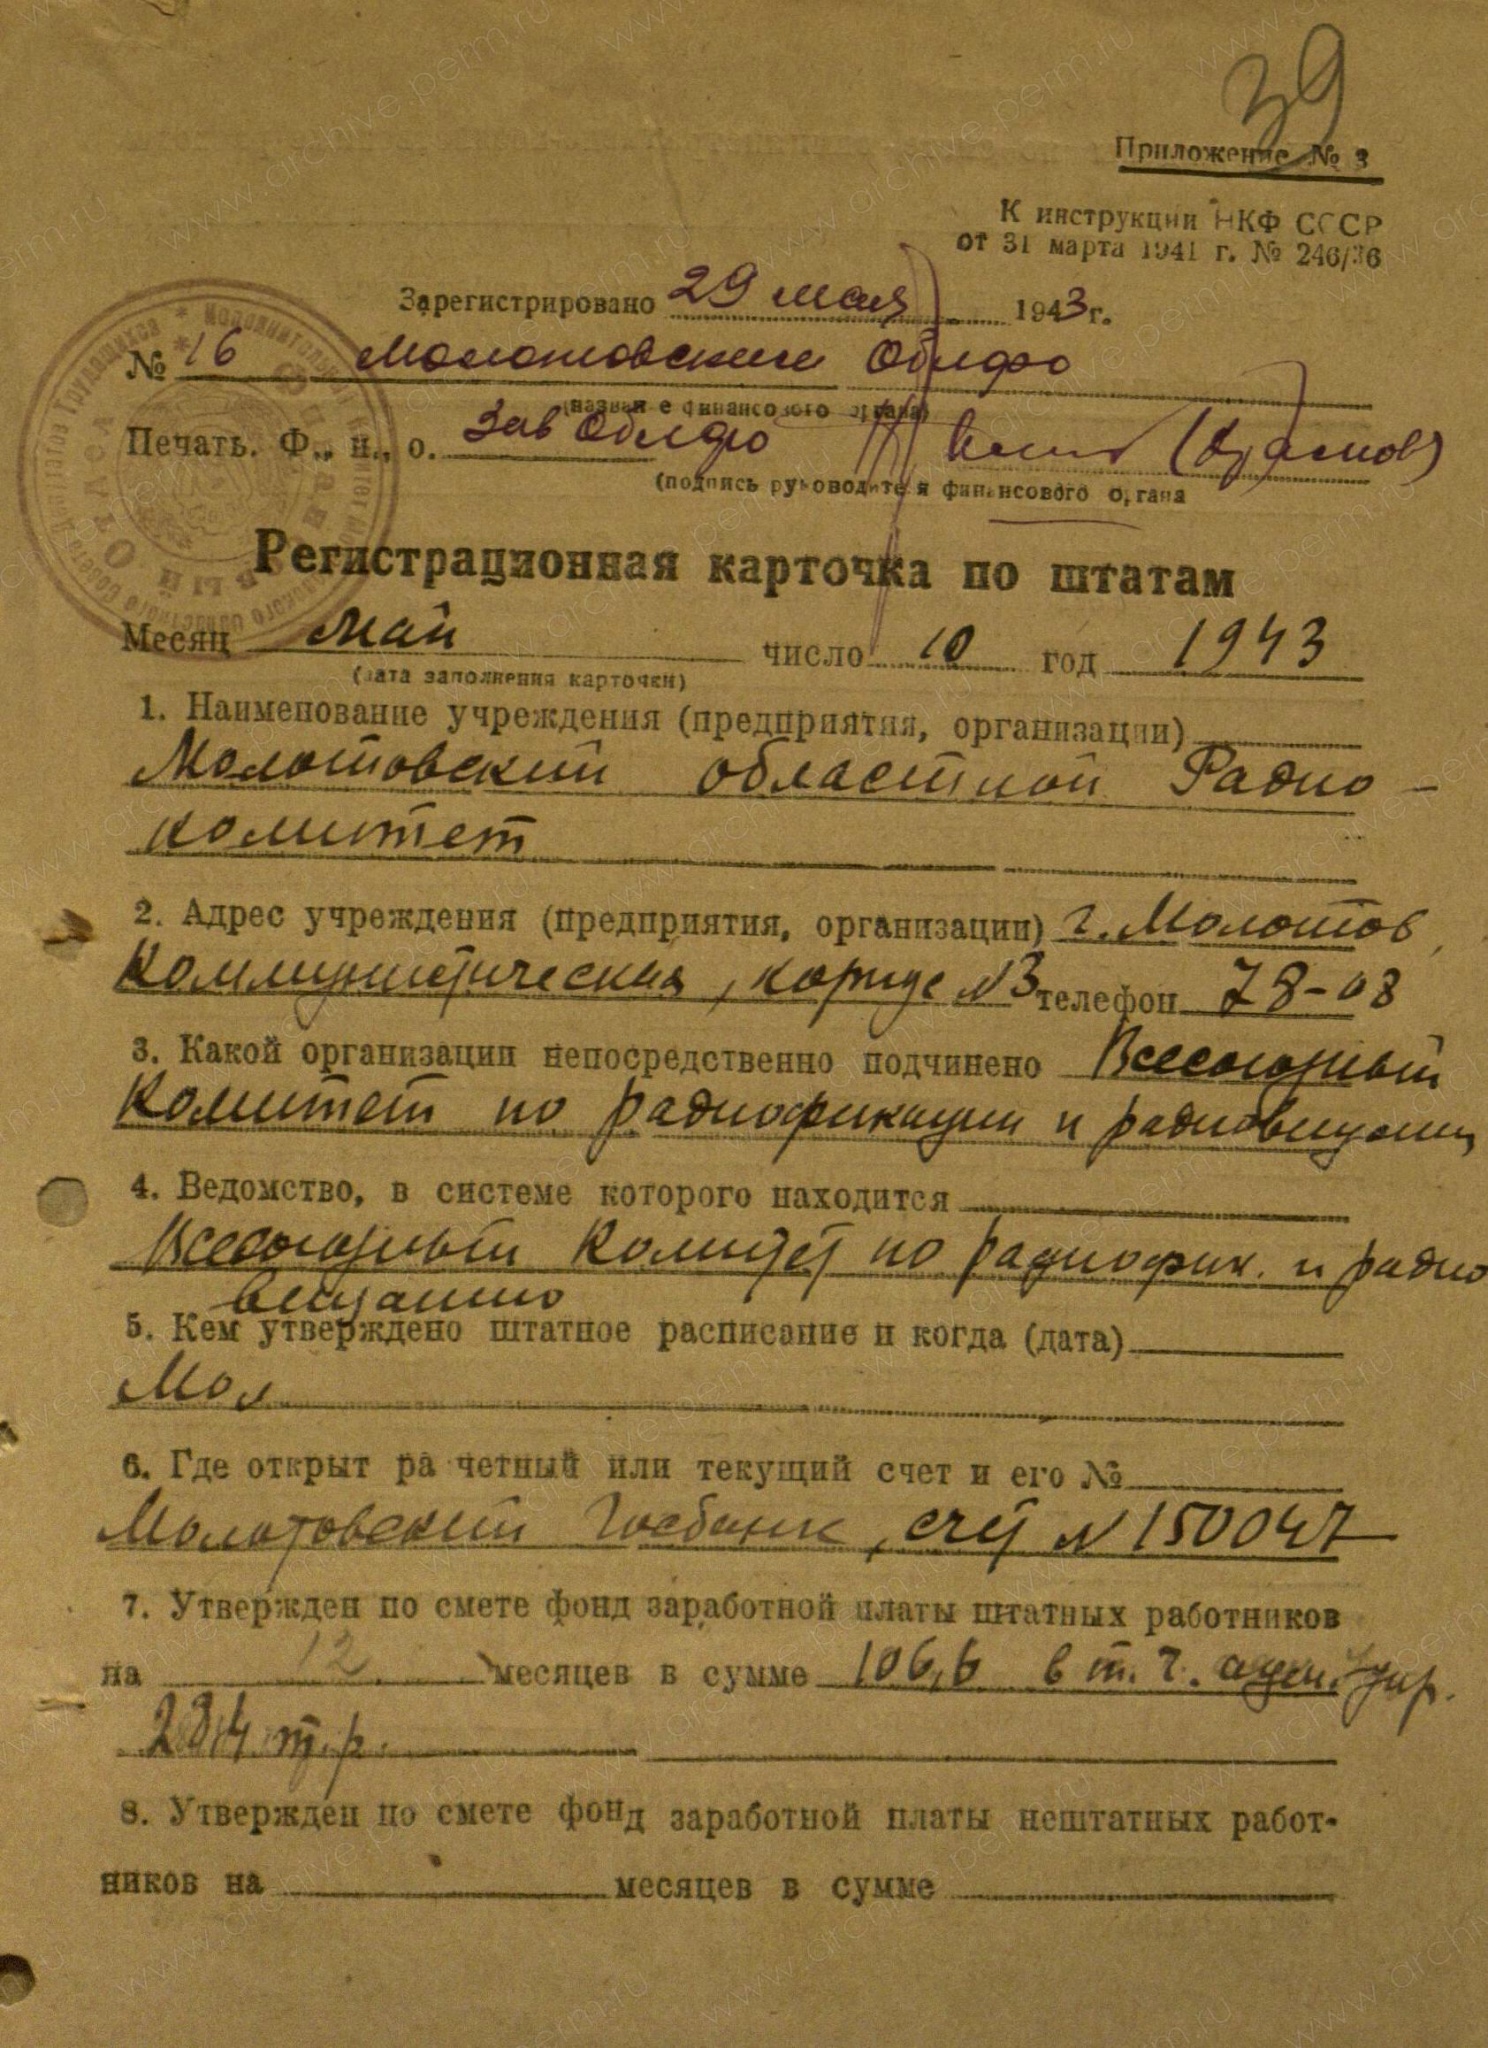 39
Приложение № 3
К инструкции НКФ СССР
от 31 марта 1941 г. № 246/36
Зарегистрировано 29 мая 1943 г.
№ 16 Молотовским Облфо
(название финансового органа)
Печать. Ф., н., о. Зав Облфо
(подпись руководителя финансового органа
Регистрационная карточка по штатам
Месяц май число 10 год 1943
(дата заполнения карточки)
1. Наименование учреждения (предприятия, организации)
Молотовский областной Радио-
комитет
2. Адрес учреждения (предприятия, организации) г. Молотов,
Коммунистическая, корпус №3 телефон 78-08
3. Какой организации непосредственно подчинено Всесоюзный
Комитет по радиофикации и радиовещанию
4. Ведомство, в системе которого находится
Всесоюзный Комитет по радиофик. и радио
вещанию
5. Кем утверждено штатное расписание и когда (дата)
Мол
6. Где открыт ра четный или текущий счет и его №
Молотовский Госбанк, счет №150047
7. Утвержден по смете фонд заработной платы штатных работников
на 12 месяцев в сумме 106,6 в т. ч.
т.р.
8. Утвержден по смете фонд заработной платы нештатных работ-
ников на месяцев в сумме
www.archive.perm.ru